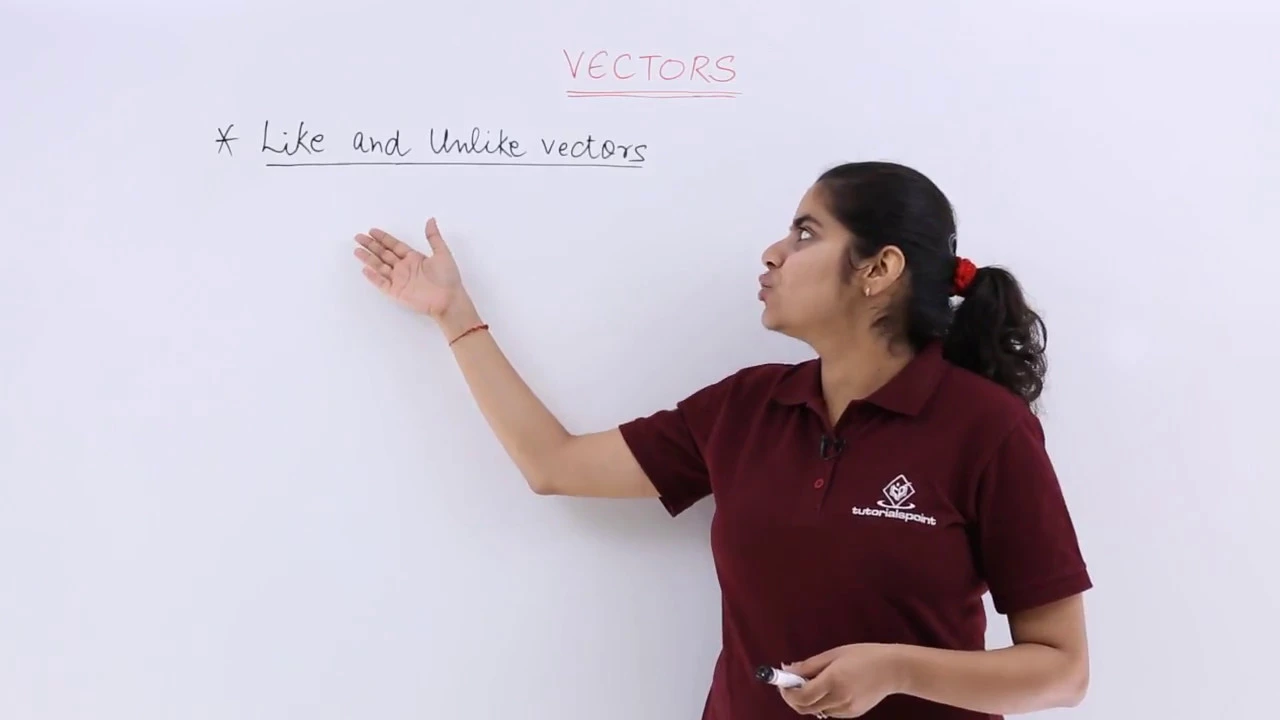 VECTORS
* Like and Unlike vectors
tutorialspoint